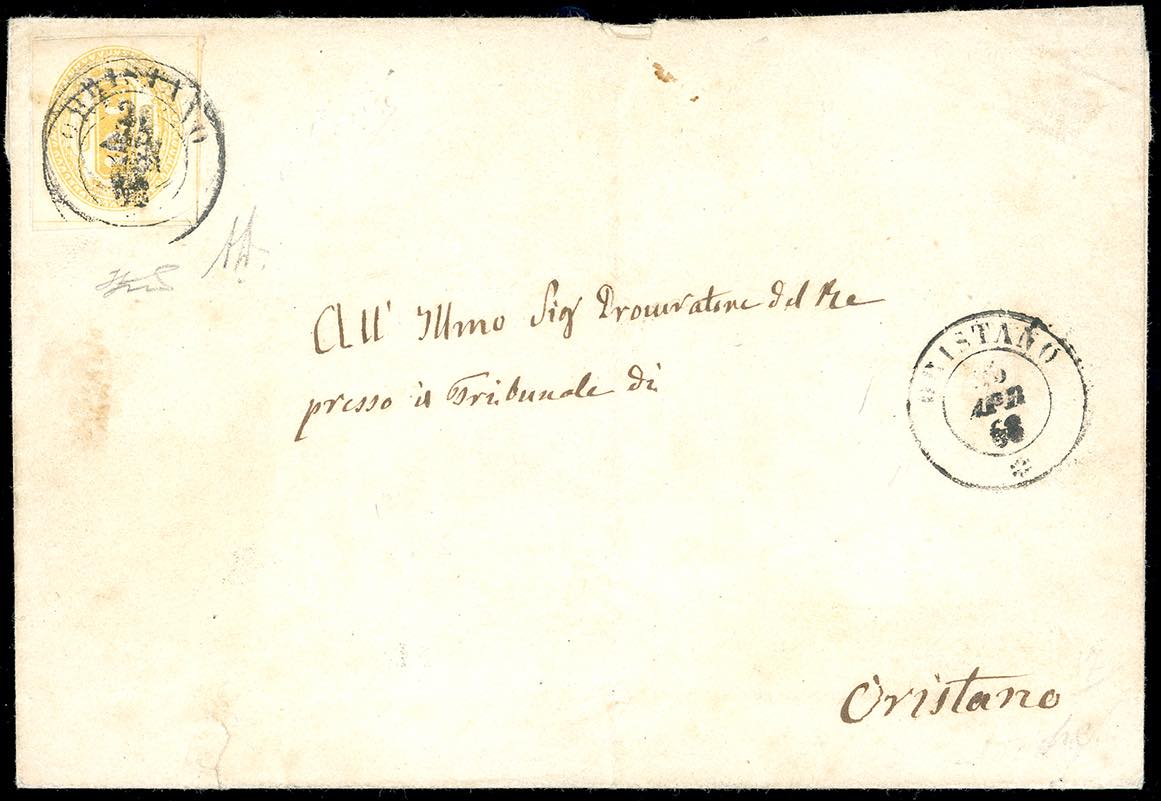 ORISTANO
All' Illmo Sig Procuratore del Re
presso il Tribunale di
ORISTANO
APR
68
Oristano